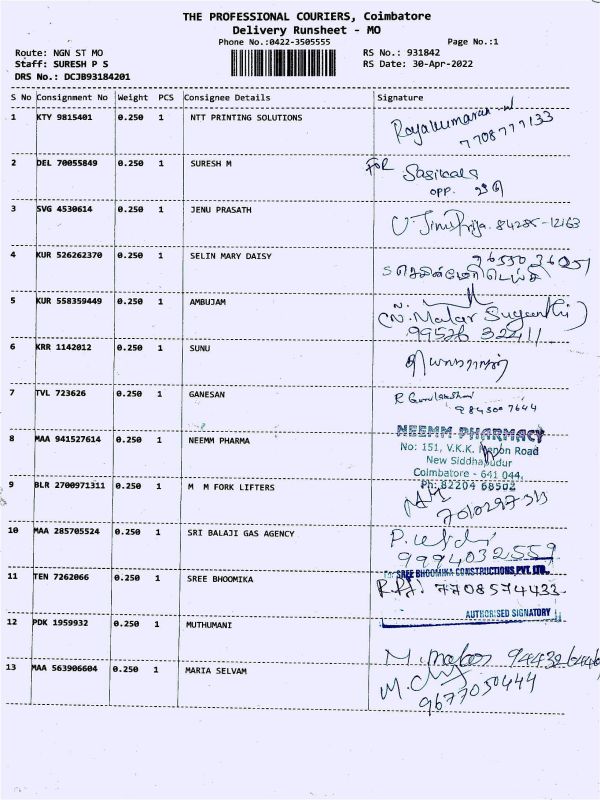 THE PROFESSIONAL COURIERS, Coimbatore
Delivery Runsheet - MO
Phone No.:0422-3505555 Page No.:1
Route: NGN ST MO RS No.: 931842
Staff: SURESH P S RS Date: 30-Apr-2022
DRS No.: DCJB93184201
S No Consignment No Weight PCS Consignee Details Signature
1 KTY 9815401 0.250 1 NTT PRINTING SOLUTIONS Rajakumaran
7708777133
2 DEL 70055849 0.250 1 SURESH M FOR Sasikala
OPP.
3 SVG 4530614 0.250 1 JENU PRASATH 84285-12163
4 KUR 526262370 0.250 1 SELIN MARY DAISY
5 KUR 558359449 0.250 1 AMBUJAM (N. Malar Suganthi)
99526 32411
6 KRR 1142012 0.250 1 SUNU
7 TVL 723626 0.250 1 GANESAN
984500 7644
NEEMM PHARMACY
8 MAA 941527614 0.250 1 NEEMM PHARMA No: 151, V.K.K. Menon Road
New Siddhapudur
Coimbatore - 641 044.
Ph: 82204 68502
9 BLR 2700971311 0.250 1 M M FORK LIFTERS
7010297313
10 MAA 285705524 0.250 1 SRI BALAJI GAS AGENCY
9994032559
For SREE BHOOMIKA CONSTRUCTIONS PVT. LTD.
11 TEN 7262066 0.250 1 SREE BHOOMIKA 7708574433
AUTHORISED SIGNATORY
12 PDK 1959932 0.250 1 MUTHUMANI
13 MAA 563906604 0.250 1 MARIA SELVAM
9677050444